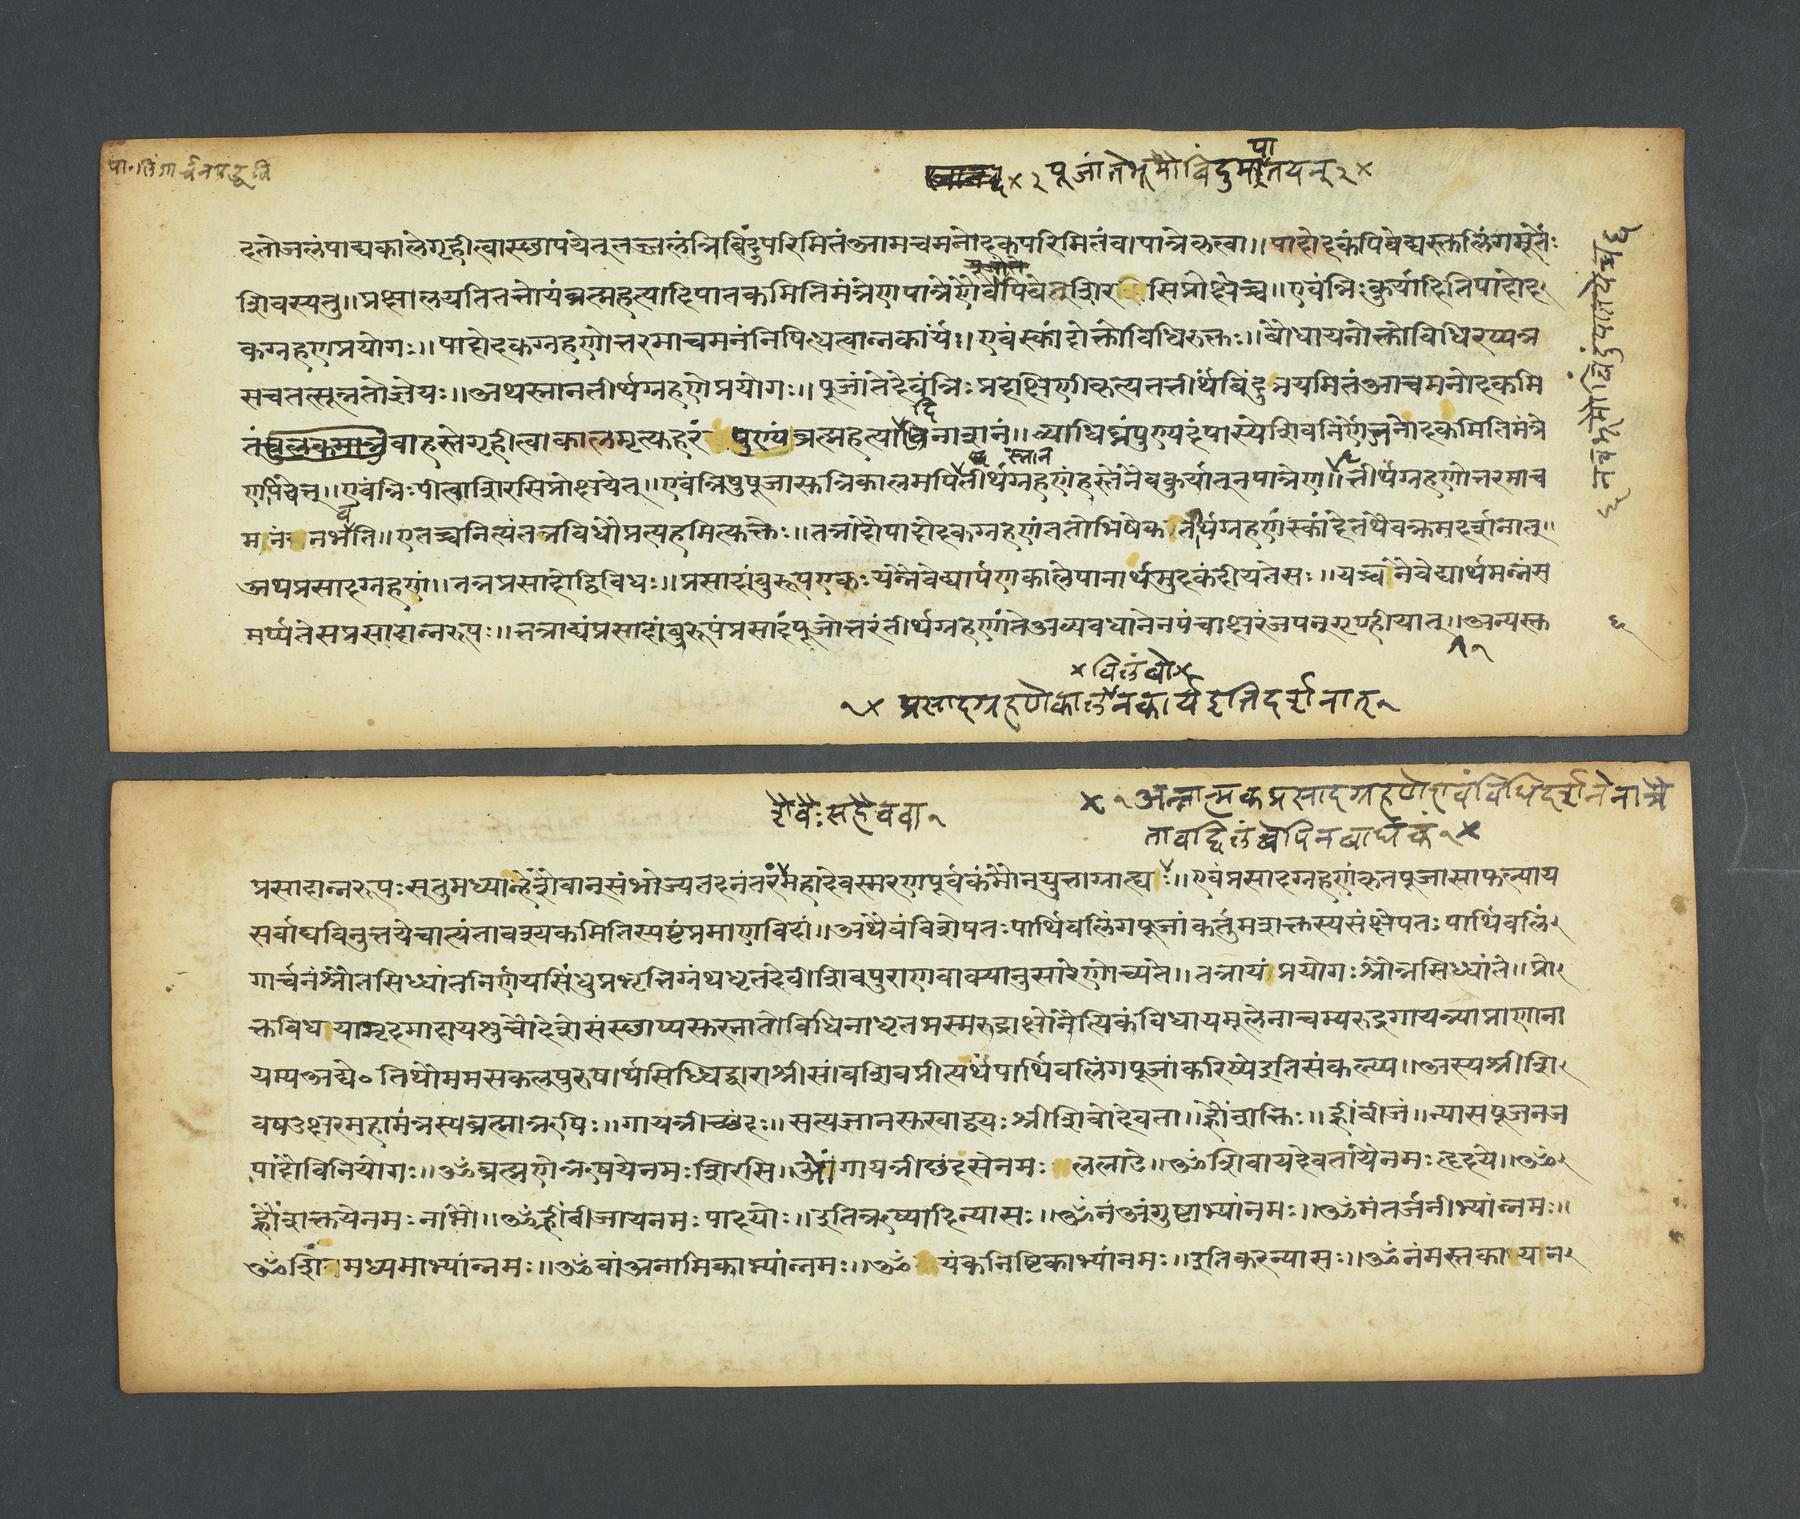 पा॰लिंगार्चनपद्धति
पूजांतेभूमौबिंदुमपातयन्२
दतोजलंपाद्यकालेगृहीत्वास्थापयेत्तज्जलंत्रिबिंदुपरिमितंआमचमनोदकपरिमितंवापात्रेकृत्वा॥पादोदकंपिबेद्यस्तुलिंगमूर्तेः
शिवस्यतु॥प्रक्षालयतितत्तोयंब्रह्महत्यादिपातकमितिमंत्रेणपात्रेणैवपिबेत्शिरसिप्रोक्षेच्च॥एवंत्रिःकुर्यादितिपादोद
कग्रहणप्रयोगः॥पादोदकग्रहणोत्तरमाचमनंनिषिध्यत्वान्नकार्यं॥एवंस्कांदोक्तोविधिरुक्तः॥बौधायनोक्तोविधिरप्यत्र
सचतत्सूत्रतोज्ञेयः॥अथस्नानतीर्थग्रहणेप्रयोगः॥पूजांतेदेवंत्रिःप्रदक्षिणीकृत्यतत्तीर्थंबिंदुत्रयमितंआचमनोदकमि
तंवाहस्तेगृहीत्वाकालमृत्युहरंपुण्यंब्रह्महत्यादिविनाशनं॥व्याधिघ्नंपुण्यदंपास्येशिवनिर्णेजनोदकमितिमंत्रे
णपिबेत्॥एवंत्रिःपीत्वाशिरसिप्रोक्षयेत्॥एवंत्रिषुपूजास्तत्रिकालमपितीर्थग्रहणंहस्तेनैवकुर्यात्नपात्रेण॥तीर्थग्रहणोत्तरमाच
मनंनभवति॥एतच्चनित्यंतत्रविधौप्रत्यहमित्युक्तेः॥तत्रादौपादोदकग्रहणंततोभिषेकतीर्थग्रहणंस्कांदेतथैवक्रमदर्शनात्॥
अथप्रसादग्रहणं॥तत्रप्रसादोद्विविधः॥प्रसादांबुरूपएकःयोनैवेद्यार्पणकालेपानार्थमुदकंदीयतेसः॥यच्चनैवेद्यार्थमन्नंस
मर्प्यतेसप्रसादान्नरूपः॥तत्राद्यंप्रसादांबुरूपंप्रसादंपूजोत्तरंतीर्थग्रहणांतेअव्यवधानेनपंचाक्षरंजपन्गृण्हीयात्॥अन्यस्तु
विलंबो
प्रसादग्रहणेकालेनकार्यइतिदर्शनात्१
शैवैःसहैववा१
१अन्नात्मकप्रसादग्रहणेएवंविधिदर्शनेनान्ने
तावद्विलंबेपिनबाधकं१
प्रसादान्नरूपःसतुमध्यान्हेशैवान्संभोज्यतदनंतरंमहादेवस्मरणपूर्वकंमौनयुक्ताग्राह्यः॥एवंप्रसादग्रहणंकृतपूजासाफल्याय
सर्वाघविनुत्तयेचात्यंतावश्यकमितिस्पष्टंप्रमाणविदां॥अथैवंविशेषतःपार्थिवलिंगपूजांकर्तुमशक्तस्यसंक्षेपतःपार्थिवलिं
गार्चनंश्रौतसिध्यांतनिर्णयसिंधुप्रभृतिग्रंथधृतदेवीशिवपुराणवाक्यानुसारेणोच्यते॥तत्रायंप्रयोगःश्रौतसिध्यांते॥प्रो
क्तविधयामृदमादायशुचौदेशेसंस्थाप्यस्तुस्नातोविधिनाधृतभस्मरुद्राक्षोनैत्यिकंविधायमूलेनाचम्यरुद्रगायत्र्याप्राणाना
यम्यअद्ये०तिथौममसकलपुरुषार्थसिध्धिद्वाराश्रीसांबशिवप्रीत्यर्थंपार्थिवलिंगपूजांकरिष्येइतिसंकल्प्य॥अस्यश्रीशि
वषडक्षरमहामंत्रस्यब्रह्माऋषिः॥गायत्रीच्छंदः॥सत्यज्ञानसुखाद्वयःश्रीशिवोदेवता॥ह्रौंशक्तिः॥ह्रींबीजं॥न्यासपूजनज
पादौविनियोगः॥ॐब्रह्मणेऋषयेनमःशिरसि॥ॐगायत्रीछंदसेनमःललाटे॥ॐशिवायदेवतायैनमःहृदये॥ॐ
ह्रौंशक्तयेनमःनाभौ॥ॐह्रींबीजायनमःपादयोः॥इतिऋष्यादिन्यासः॥ॐनंअंगुष्टाभ्यांनमः॥ॐमंतर्जनीभ्यांन्नमः॥
ॐशिंमध्यमाभ्यांन्नमः॥ॐवांअनामिकाभ्यांन्नमः॥ॐयंकनिष्टिकाभ्यांनमः॥इतिकरन्यासः॥ॐनंमस्तकायन